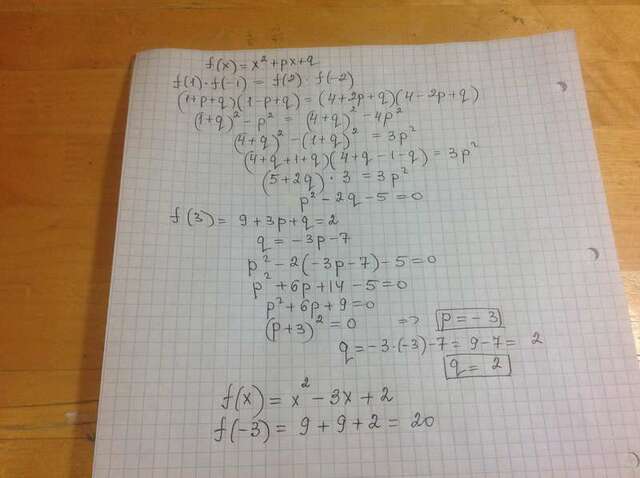 f(x) = x² + px + q
f(1) · f(-1) = f(2) · f(-2)
(1+p+q)(1-p+q) = (4+2p+q)(4-2p+q)
(1+q)² - p² = (4+q)² - 4p²
(4+q)² - (1+q)² = 3p²
(4+q+1+q)(4+q-1-q) = 3p²
(5+2q) · 3 = 3p²
p² - 2q - 5 = 0
f(3) = 9 + 3p + q = 2
q = -3p - 7
p² - 2(-3p-7) - 5 = 0
p² + 6p + 14 - 5 = 0
p² + 6p + 9 = 0
(p+3)² = 0 => p = -3
q = -3·(-3) - 7 = 9 - 7 = 2
q = 2
f(x) = x² - 3x + 2
f(-3) = 9 + 9 + 2 = 20